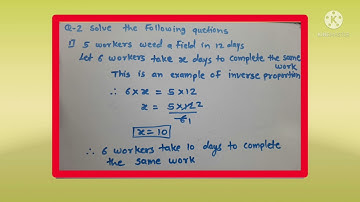 Q-2 Solve the Following quetions
1) 5 workers weed a field in 12 days
Let 6 workers take x days to complete the same
work
This is an example of inverse proportion
∴ 6 × x = 5 × 12
x = 5 × 12 2
6 1
x = 10
∴ 6 workers take 10 days to complete
the same work